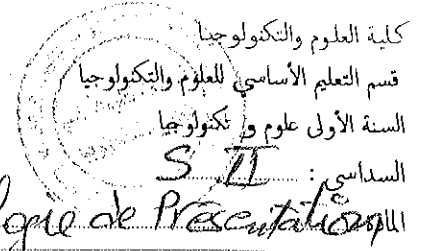 كلية العلوم والتكنولوجيا
قسم التعليم الأساسي للعلوم والتكنولوجيا
السنة الأولى علوم و تكنولوجيا
السداسي : S II
logie de Présentation